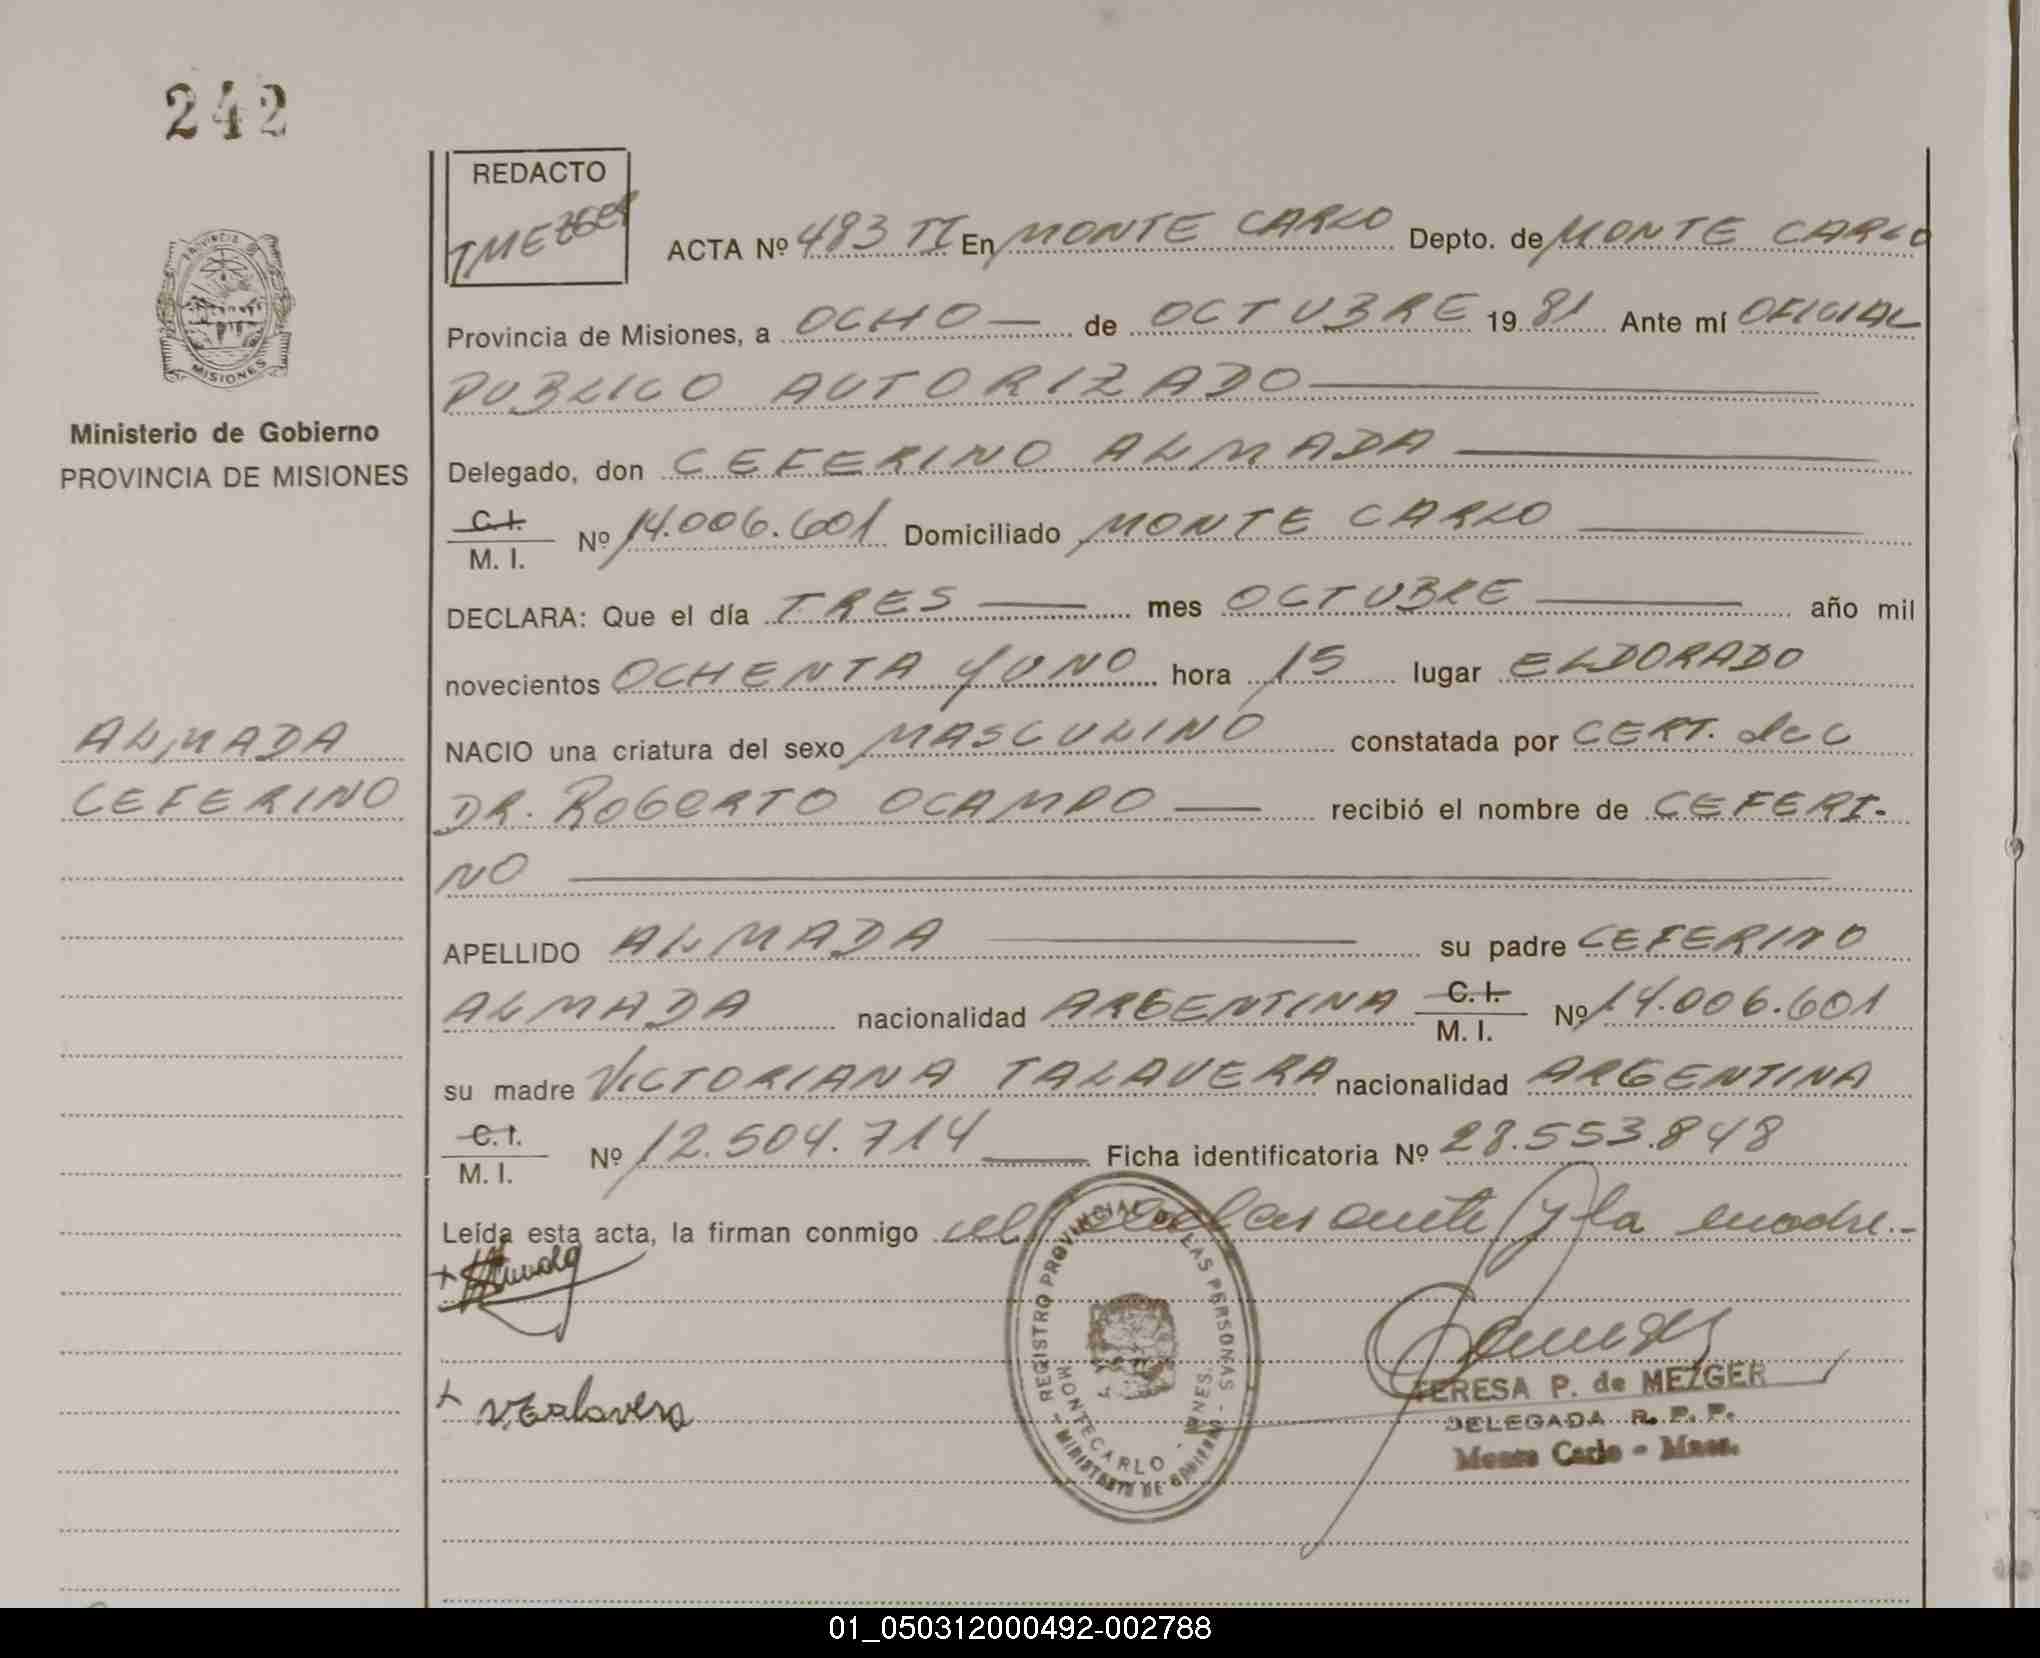 242
REDACTO
TMEZGER
ACTA Nº 493 TI En MONTE CARLO Depto. de MONTE CARLO
Provincia de Misiones, a OCHO — de OCTUBRE 19 81 Ante mí OFICIAL
PUBLICO AUTORIZADO
PROVINCIA DE
MISIONES
Ministerio de Gobierno
PROVINCIA DE MISIONES
Delegado, don CEFERINO ALMADA
C.I.
M. I. Nº 14.006.601 Domiciliado MONTE CARLO
DECLARA: Que el día TRES — mes OCTUBRE — año mil
novecientos OCHENTA Y UNO hora 15 lugar ELDORADO
ALMADA
CEFERINO
NACIO una criatura del sexo MASCULINO constatada por CERT. de C
DR. ROBERTO OCAMPO — recibió el nombre de CEFERI-
NO
APELLIDO ALMADA — su padre CEFERINO
ALMADA nacionalidad ARGENTINA C. I. M. I. Nº 14.006.601
su madre VICTORIANA TALAVERA nacionalidad ARGENTINA
C. I.
M. I. Nº 12.504.714 — Ficha identificatoria Nº 28.553.848
Leída esta acta, la firman conmigo el declarante y la madre.-
+
+ V. Talavera
REGISTRO PROVINCIAL DE LAS PERSONAS
MONTECARLO - MNES.
MINISTERIO DE GOBIERNO
TERESA P. de MEZGER
DELEGADA R. P. P.
Monte Carlo - Mnes.
01_050312000492-002788